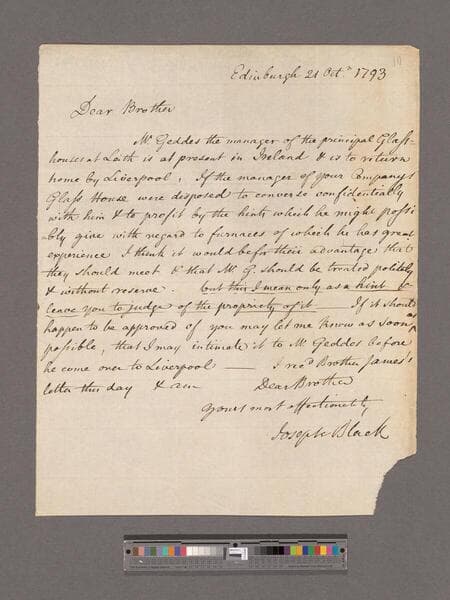 Edinburgh 21 Octr. 1793
Dear Brother
Mr Geddes the manager of the principal Glass-
houses at Leith is at present in Ireland & is to return
home by Liverpool, If the manager of your Companys
Glass House were disposed to converse confidentially
with him & to profit by the hints which he might possi
bly give with regard to furnaces of which he has great
experience I think it would be for their advantage that
they should meet & that Mr G should be treated politely
& without reserve. but this I mean only as a hint &
leave you to judge of the propriety of it If it should
happen to be approved of you may let me know as soon as
possible, that I may intimate it to Mr Geddes before
he come over to Liverpool — I recd Brother James's
letter this day & am Dear Brother
yours most affectionately
Joseph Black